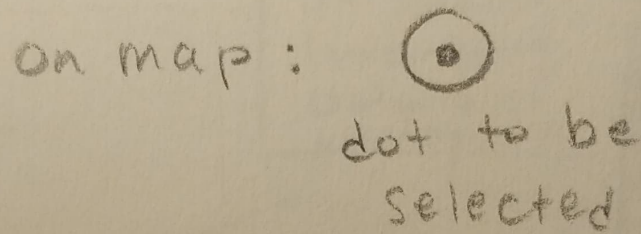 on map:
dot to be
selected